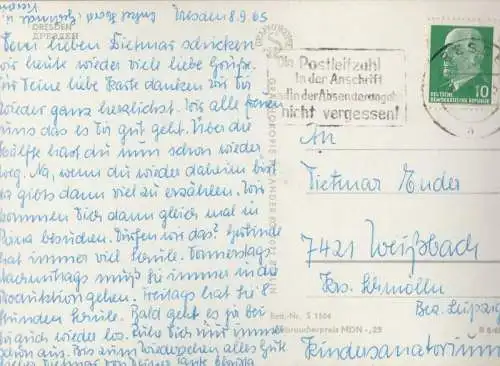 Dresden 8.9.65
DRESDEN
Dem lieben Dietmar schicken
wir heute wieder viele liebe Grüße.
Für Deine liebe Karte danken wir Dir
wieder ganz herzlichst. Wir alle freuen
uns das es Dir gut geht. Über die
Hälfte hast du nun schon wieder
weg. Na, wenn du wieder daheim bist
da gibts dann viel zu erzählen. Wir
kommen Dich dann gleich mal in
Pirna besuchen. Dürfen wir das?
hat immer viel Schule. Donnerstags
Nachmittags muß sie immer in die
Produktion gehen. Freitags hat sie 8
Stunden Schule. Bald geht es ja bei
auch wieder los. Ruhe Dich nur immer
schön aus. Bis zum Wiedersehen alles Gute
lieber Dietmar von Deiner Tante
Die Postleitzahl
in der Anschrift
und in der Absenderangabe
nicht vergessen!
DEUTSCHE
DEMOKRATISCHE REPUBLIK
10
An
Dietmar Ender
7421 Weißbach
Krs. Schmölln
Bez. Leipzig
Kindersanatorium
Best.-Nr. S 1504
Verbraucherpreis MDN -,25